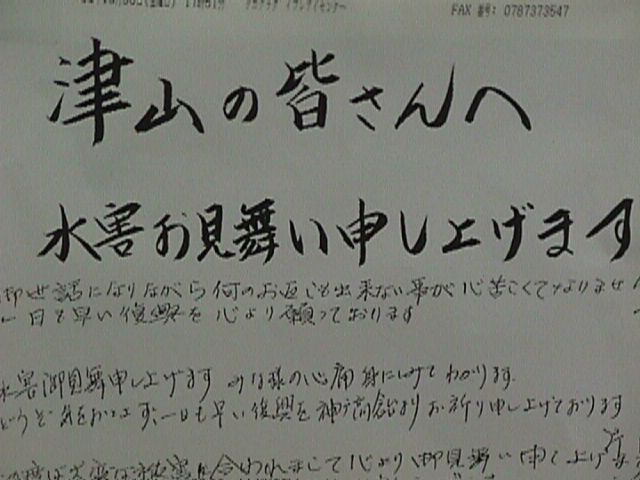 FAX 番号: 0787373547
津山の皆さんへ
水害お見舞い申し上げます
御世話になりながら何のお返しも出来ない事が心苦しくてなりませ
一日も早い復興を心より願っております
水害御見舞申し上げます みな様の心痛身にしみてわかります。
どうぞ気をおとさず、一日も早い復興を神戸 よりお祈り申し上げております
心より御見舞い申し上げ